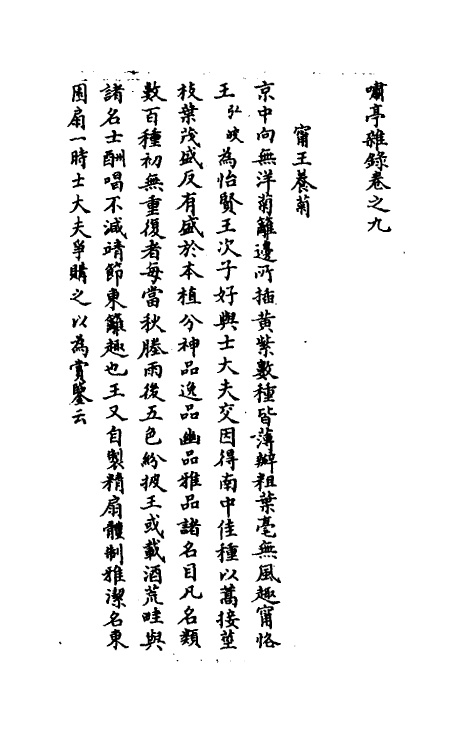 嘯亭雜錄卷之九
甯王養菊
京中向無洋菊籬邊所插黃紫數種皆薄瓣粗葉毫無風趣甯恪
王弘晈為怡賢王次子好與士大夫交因得南中佳種以蒿接莖
枝葉茂盛反有盛於本植分神品逸品幽品雅品諸名目凡名類
數百種初無重復者每當秋塍雨後五色紛披王或載酒荒畦與
諸名士酬唱不減靖節東籬趣也王又自製精扇體制雅潔名東
園扇一時士大夫爭購之以為賞鑒云